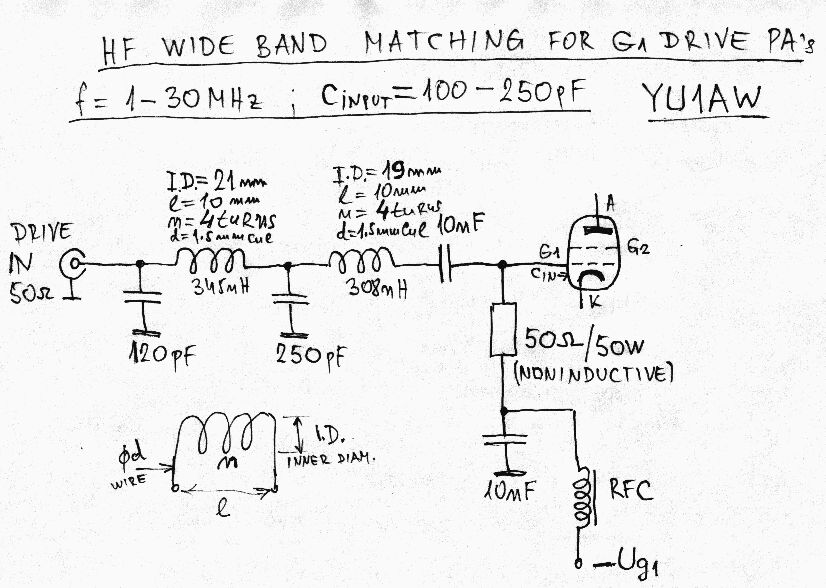 HF WIDE BAND MATCHING FOR G1 DRIVE PA's
f= 1-30MHz ; CINPUT=100-250pF YU1AW
I.D.=21mm
l=10mm
n=4turns
d=1.5mmCuL
I.D.=19mm
l=10mm
n=4turns
d=1.5mmCuL
10nF
A
DRIVE
IN
50Ω
G1
G2
CIN
K
345nH
308nH
120pF
250pF
50Ω/50W
(NONINDUCTIVE)
I.D.
INNER DIAM.
n
ϕd
WIRE
l
10nF
RFC
-Ug1